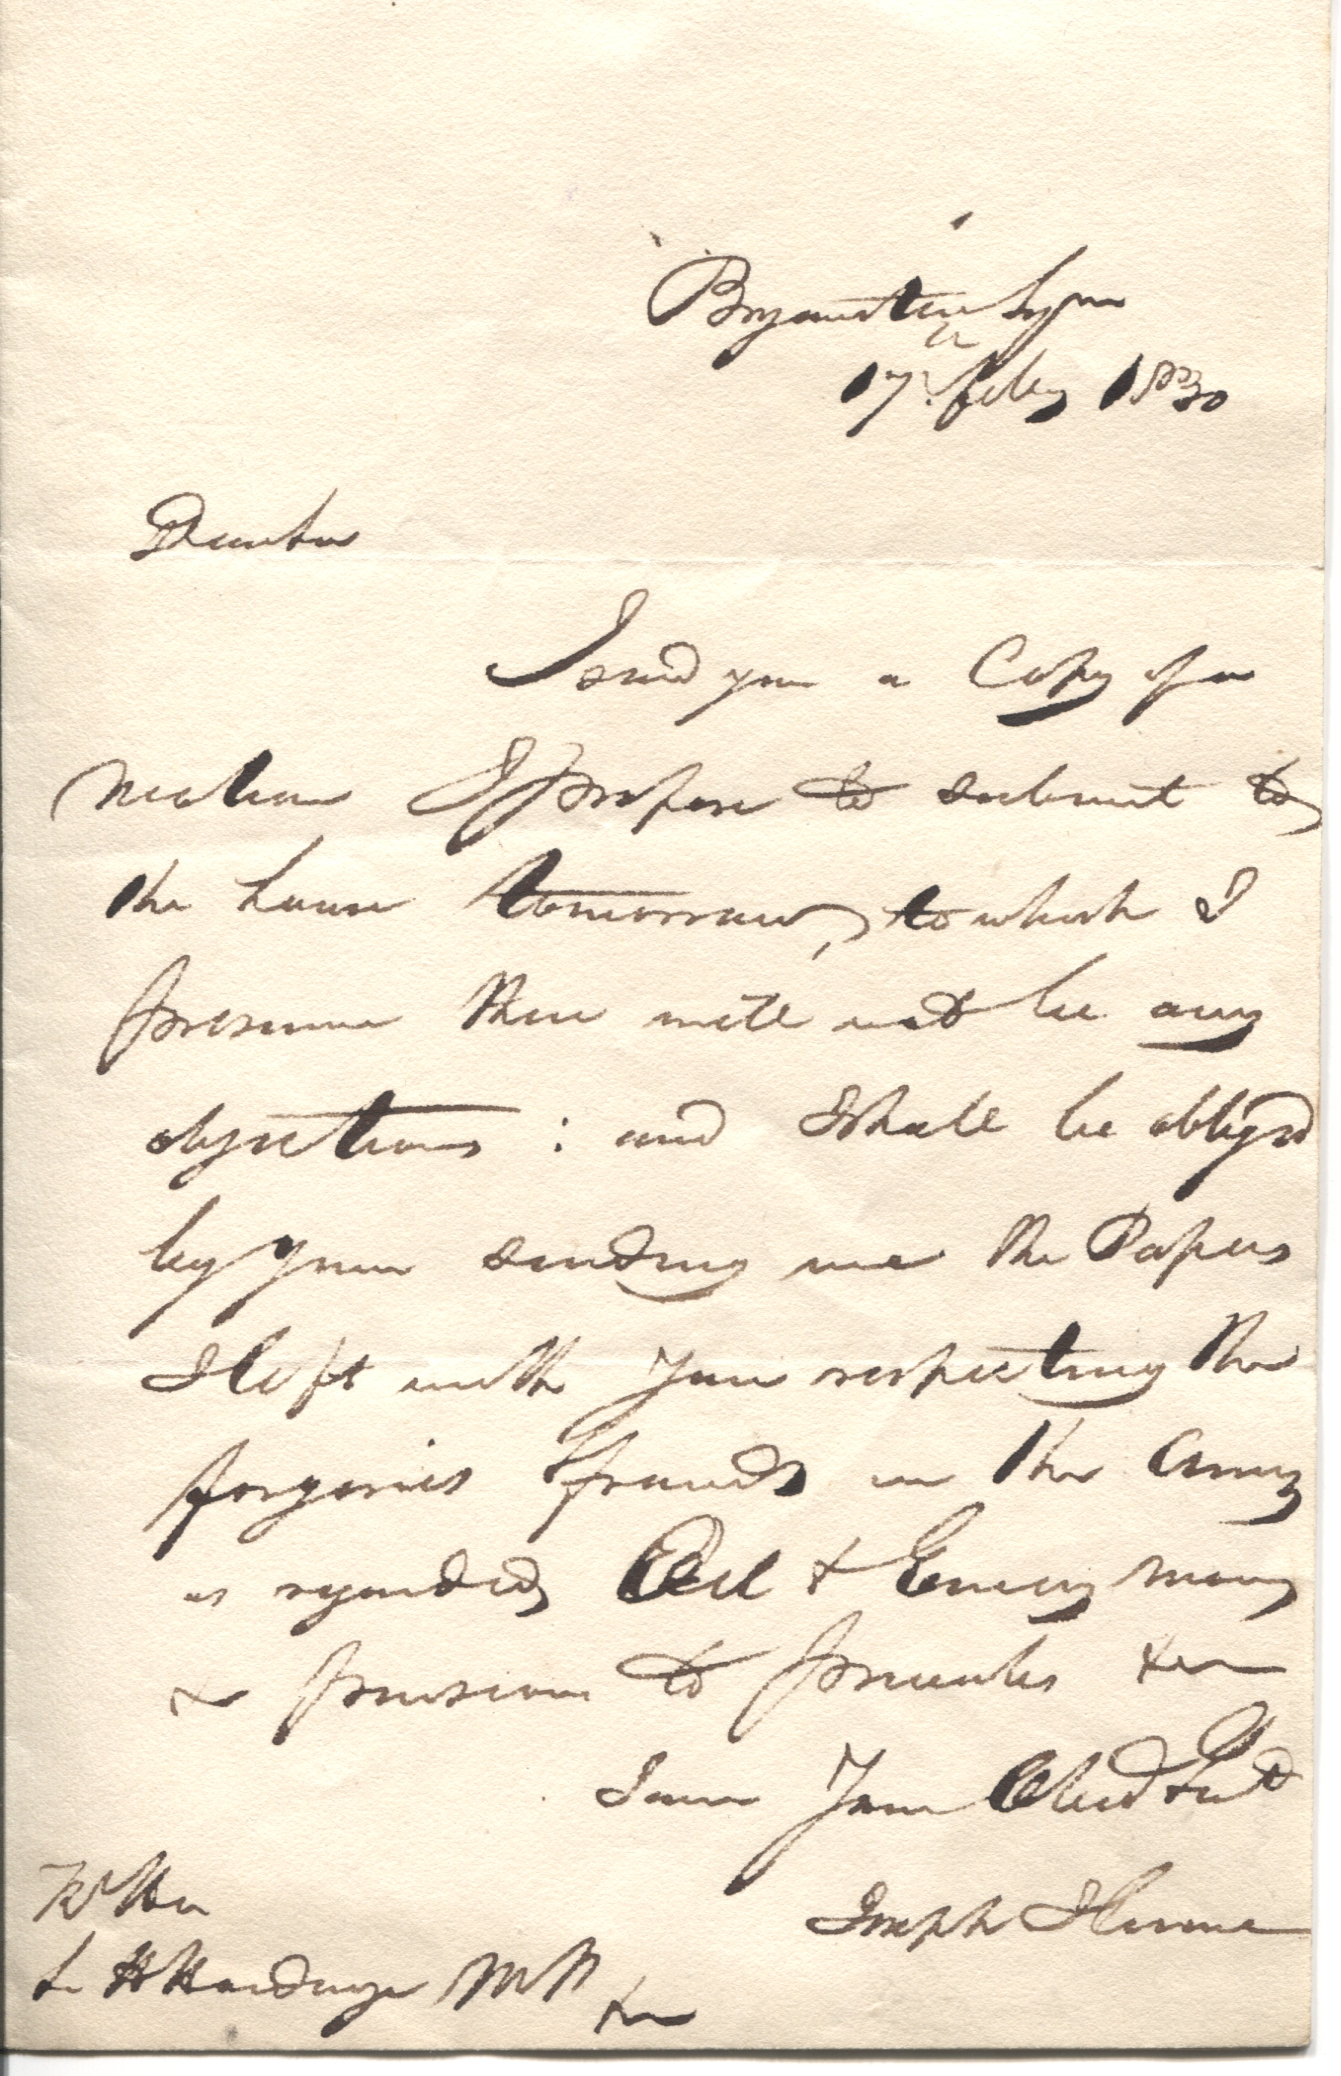 Bryanston Sqre
17th Feby 1830
Dear Sir
I send you a Copy of a
Motion I propose to submit to
the house tomorrow, to which I
presume there will not be any
objections : and I shall be obliged
by your sending me the Papers
I left with you respecting the
forgeries & frauds in the Army
as regarded & Money
& Pensions to &c
I am Your Obed Sert
Joseph Hume
Rt Hon
Sir H Hardinge MP
&c